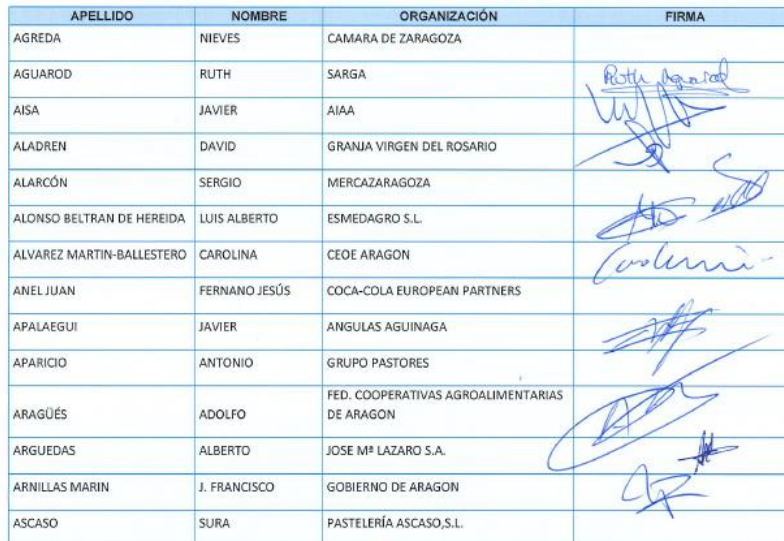 APELLIDO NOMBRE ORGANIZACIÓN FIRMA
AGREDA NIEVES CAMARA DE ZARAGOZA
AGUAROD RUTH SARGA Ruth Aguarod
AISA JAVIER AIAA
ALADREN DAVID GRANJA VIRGEN DEL ROSARIO
ALARCÓN SERGIO MERCAZARAGOZA
ALONSO BELTRAN DE HEREIDA LUIS ALBERTO ESMEDAGRO S.L.
ALVAREZ MARTIN-BALLESTERO CAROLINA CEOE ARAGON
ANEL JUAN FERNANO JESÚS COCA-COLA EUROPEAN PARTNERS
APALAEGUI JAVIER ANGULAS AGUINAGA
APARICIO ANTONIO GRUPO PASTORES
ARAGÜÉS ADOLFO FED. COOPERATIVAS AGROALIMENTARIAS
DE ARAGON
ARGUEDAS ALBERTO JOSE Mª LAZARO S.A.
ARNILLAS MARIN J. FRANCISCO GOBIERNO DE ARAGON
ASCASO SURA PASTELERÍA ASCASO,S.L.